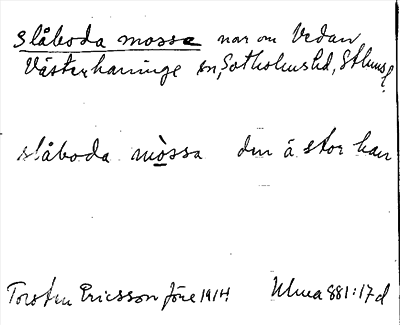 slåboda mossa nar om Vedan
Västerhaninge sn, Sotholms hd, Sthms l.
slåboda mòssa den ä stor han
Torsten Ericsson före 1914 Ulma 881:17d